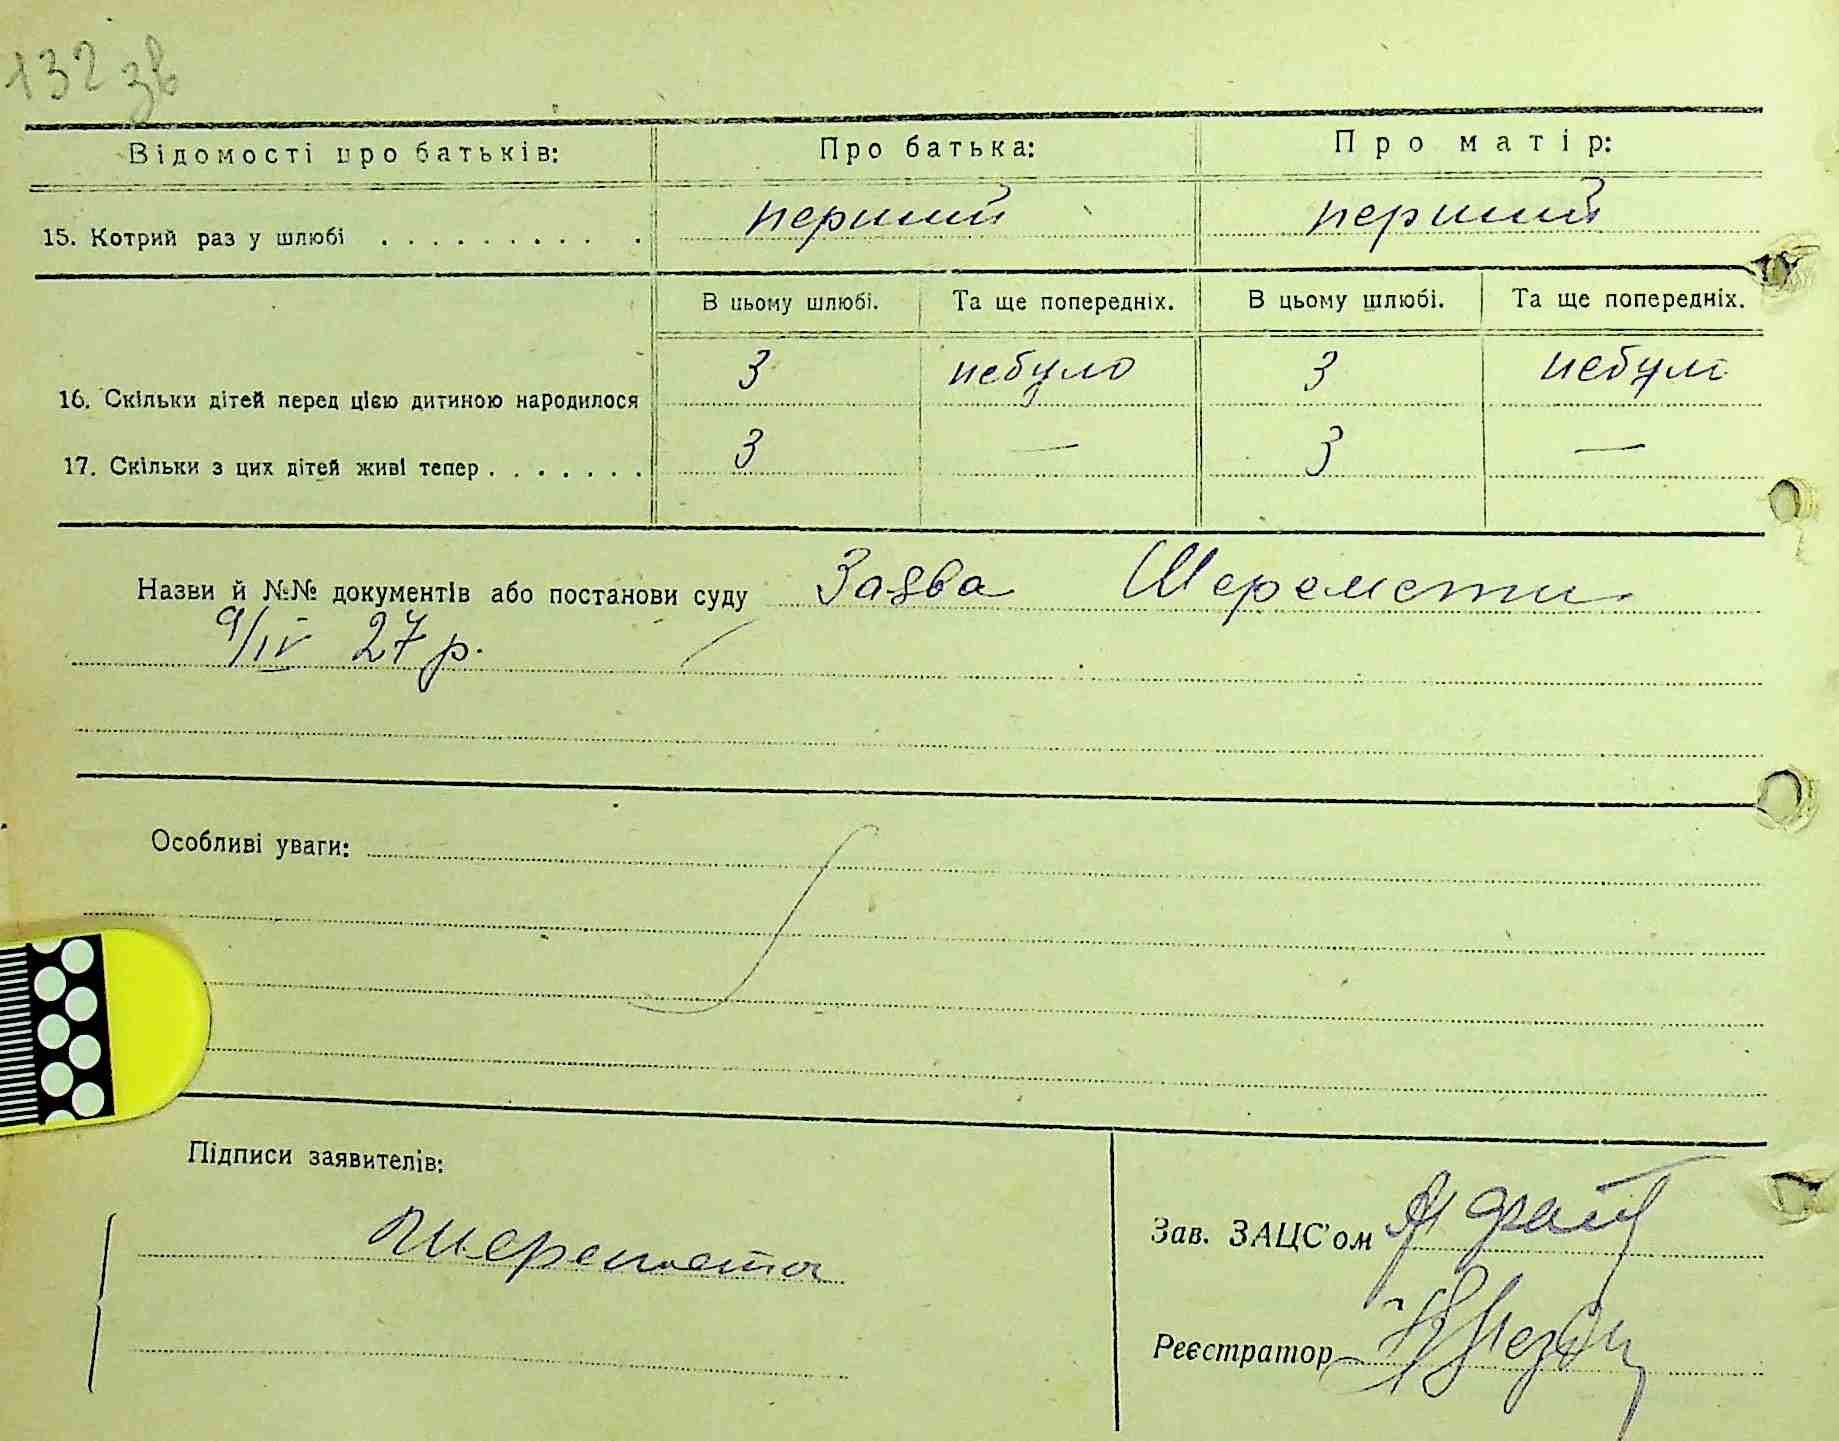 132 зв
Відомості про батьків: Про батька: Про матір:
15. Котрий раз у шлюбі . . . . . . . . . . перший перший
В цьому шлюбі. Та ще попередніх. В цьому шлюбі. Та ще попередніх.
16. Скільки дітей перед цією дитиною народилося 3 небуло 3 небуло
17. Скільки з цих дітей живі тепер . . . . . . . 3 — 3 —
Назви й №№ документів або постанови суду Заява Шеремети
9/IV 27 р.
Особливі уваги:
Підписи заявителів:
Шеремета
Зав. ЗАЦС'ом
Реєстратор